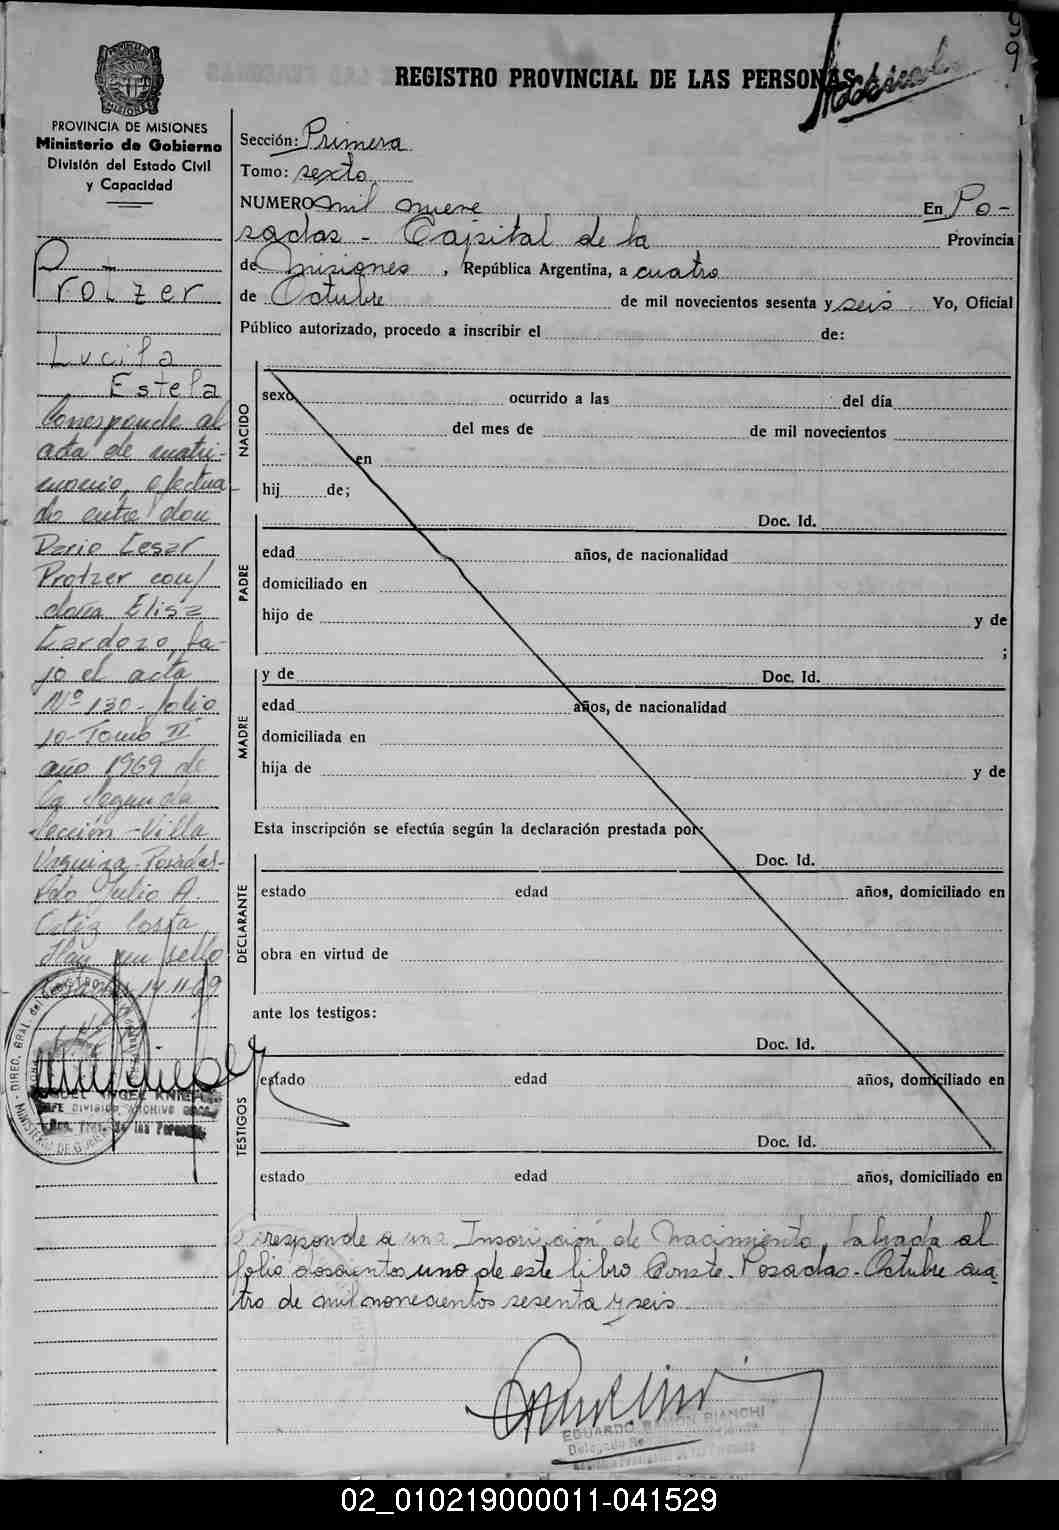 99
REGISTRO PROVINCIAL DE LAS PERSONAS
PROVINCIA DE MISIONES
Ministerio de Gobierno
División del Estado Civil
y Capacidad
Protzer
Lucila
Estela
Corresponde al
acta de matri-
monio, efectua-
do entre don
Dario Cesar
Protzer con
doña Elisa
Cardozo, ba-
jo el acta
Nº 130-folio
10-Tomo II
año 1969 de
la Segunda
Sección-Villa
Urquiza-Posadas-
Fdo Julio A.
Ortiz Costa
Hay un sello
Posadas 14.11.69
Sección: Primera
Tomo: sexto
NUMERO mil nueve En Po-
sadas - Capital de la Provincia
de Misiones, República Argentina, a cuatro
de Octubre de mil novecientos sesenta y seis Yo, Oficial
Público autorizado, procedo a inscribir el de:
NACIDO
sexo ocurrido a las del día
del mes de de mil novecientos
en
hij de;
PADRE
Doc. Id.
edad años, de nacionalidad
domiciliado en
hijo de y de
;
MADRE
y de Doc. Id.
edad años, de nacionalidad
domiciliada en
hija de y de
Esta inscripción se efectúa según la declaración prestada por:
DECLARANTE
Doc. Id.
estado edad años, domiciliado en
obra en virtud de
ante los testigos:
TESTIGOS
Doc. Id.
estado edad años, domiciliado en
Doc. Id.
estado edad años, domiciliado en
Corresponde a una Inscripción de Nacimiento, labrada al
folio doscientos uno de este libro Conste. Posadas. Octubre cua-
tro de mil novecientos sesenta y seis
EDUARDO RAMON BIANCHI
02_010219000011-041529